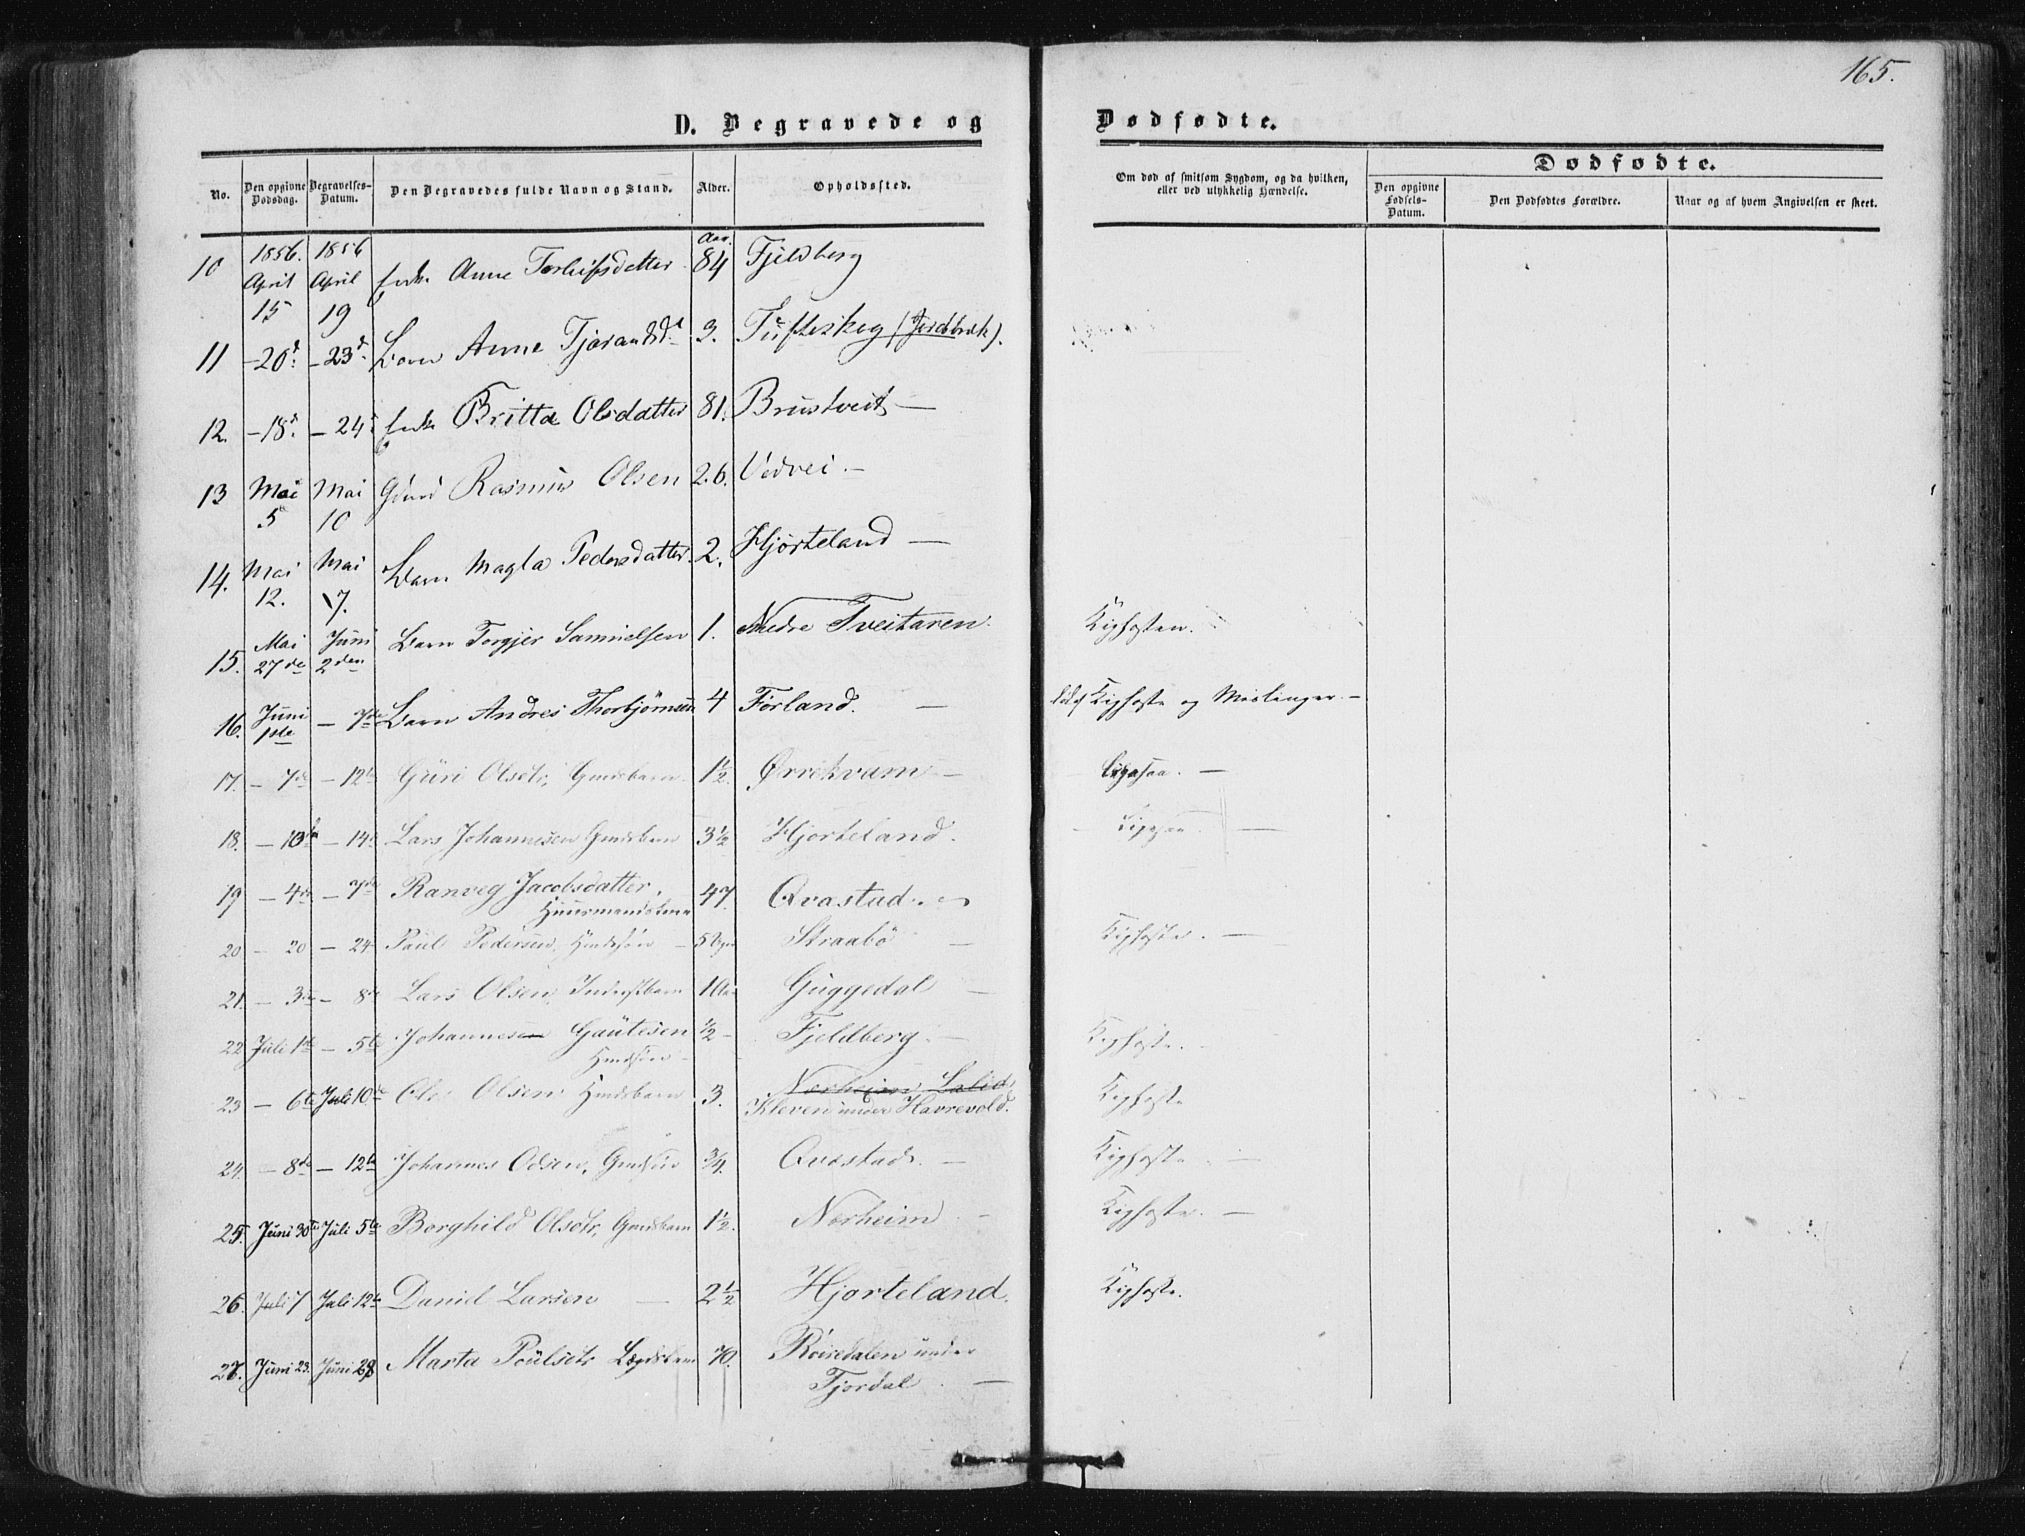 165.
D. Begravede og Dødfødte.
No. Den opgivne Dødsdag. Begravelses-Datum. Den Begravedes fulde Navn og Stand. Alder. Opholdssted. Om død af smitsom Sygdom, og da hvilken, eller ved ulykkelig Hændelse. Dødfødte.
Den opgivne Fødsels-Datum. Den Dødfødtes Forældre. Naar og af hvem Angivelsen er skeet.
1856. 1856 Aar.
10 April 15 April 19 Enke Anne Torleifsdatter 84 Fjeldberg
11 - 20d. - 23d. Barn Anne Tjørandsd. 3. Tufteskog (Jordbræk).
12. - 18d. - 24d Enke Britta Olsdatter 81. Brustveit —
13 Mai 5 Mai 10 Gmd Rasmus Olsen 26. Vedvei —
14. Mai 12. Mai 17. Barn Magla Pedersdatter. 2. Hjorteland —
15. Mai 27de Juni 2den Barn Torgjer Samuelsen 1. Nedre Tveitaren. Kighosten.
16. Juni 1ste - 7de Barn Andres Thorbjørnsen 4 Førland. — Kighoste og Meslinger. —
17. - 7de - 12te Guri Olsdtr, Gmdsbarn 1½. Ørrekvam —
18. - 10de - 14de Lars Johannesen Gmdsbarn 3½ Hjorteland.
19 - 4de - 7de Ranveg Jacobsdatter,
Huusmandskone 47. Qvastad. —
20 - 20 - 24 Paul Pedersen, Hmdssøn — 5 Uger Straabø — Kighoste. —
21. - 3de - 8de Lars Olsen, Inderstbarn 1 Aar Guggedal —
22. Juli 1ste - 5te Johannes Gautesen
Hmdssøn — ½ — Fjeldberg. — Kighoste. —
23 - 6te Juli 10de Ole Olsen Hmdsbarn 3. Nærheim
Kleven under Havrevold. Kighoste
24. - 8de - 12te Johannes Odsen, Gmdssøn ¾. Qvastad. — Kighoste. —
25. Juni 30te Juli 5te Borghild Olsdtr, Gmdsbarn 1½. Nærheim — Kighoste. —
26. Juli 7 Juli 12te Daniel Larsen — 2½ Hjorteland. Kighoste.
27. Juni 23. Juni 28 Marta Poulsdtr Lægdsbarn 70. Røisedalen under
Fjordal. —